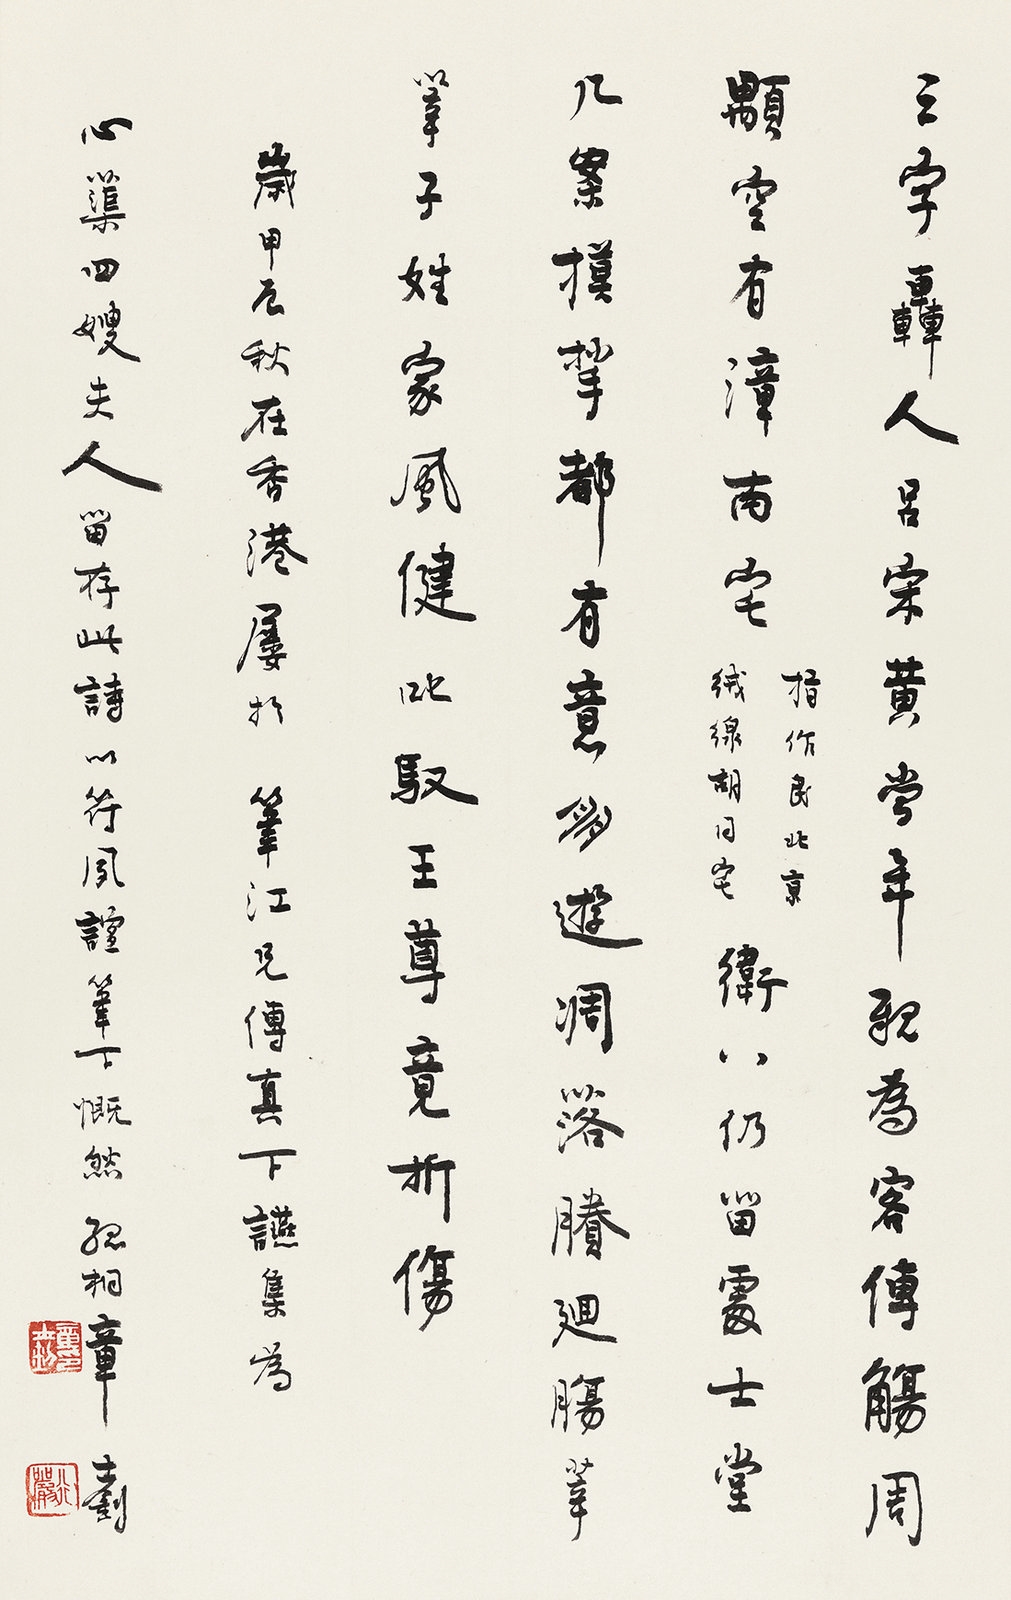 三字轟人呂宋黃當年親為客傳觴周
顒空有漳南宅
指作民北京
絨線胡同宅
衛八仍留處士堂
几案摸挲都有意 遊凋落賸迴腸筆
筆子姓家風健叱馭王尊竟折傷
歲甲辰秋在香港屢於 筆江兄傳真下讌集為
心蕖四嫂夫人留存此詩以符夙諾筆下慨然孤桐章士釗